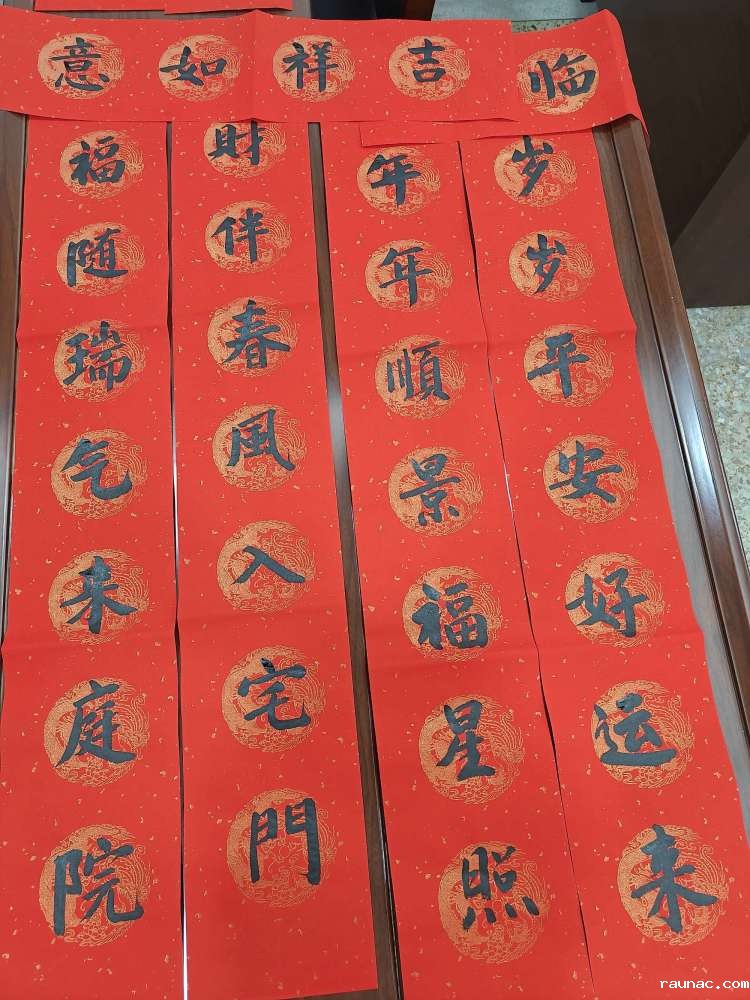 临吉祥如意
岁岁平安好运来
年年順景福星照
財伴春風入宅門
福随瑞气来庭院
raunac.com